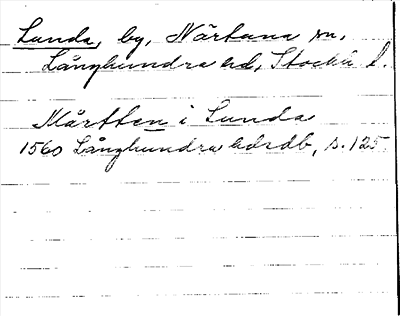 Lunda, by, Närtuna sn,
Långhundra hd, Stockh l.
Mårtten i Lunda
1560 Långhundra hdsdb, s. 125.